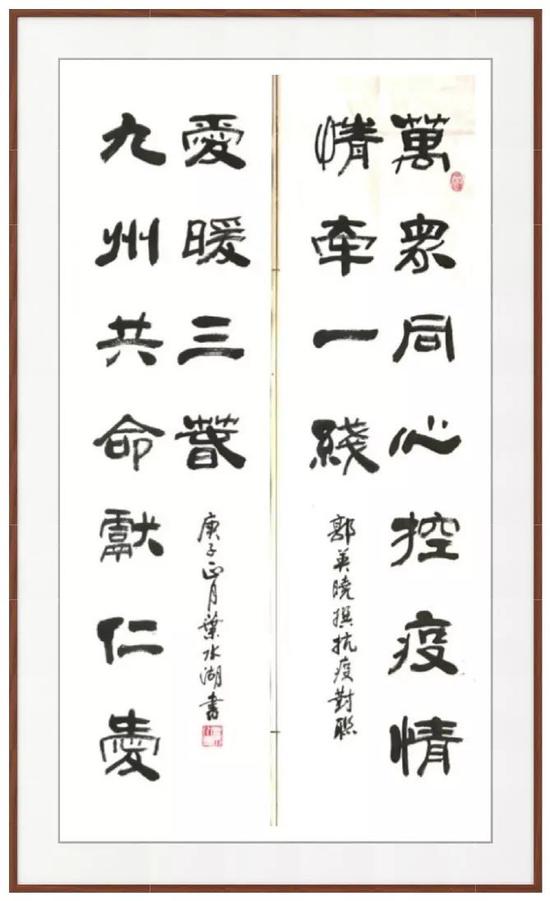 萬眾同心控疫情
情牽一綫
郭英曉撰抗疫對聯
九州共命獻仁愛
愛暖三春
庚子正月葉水湖書